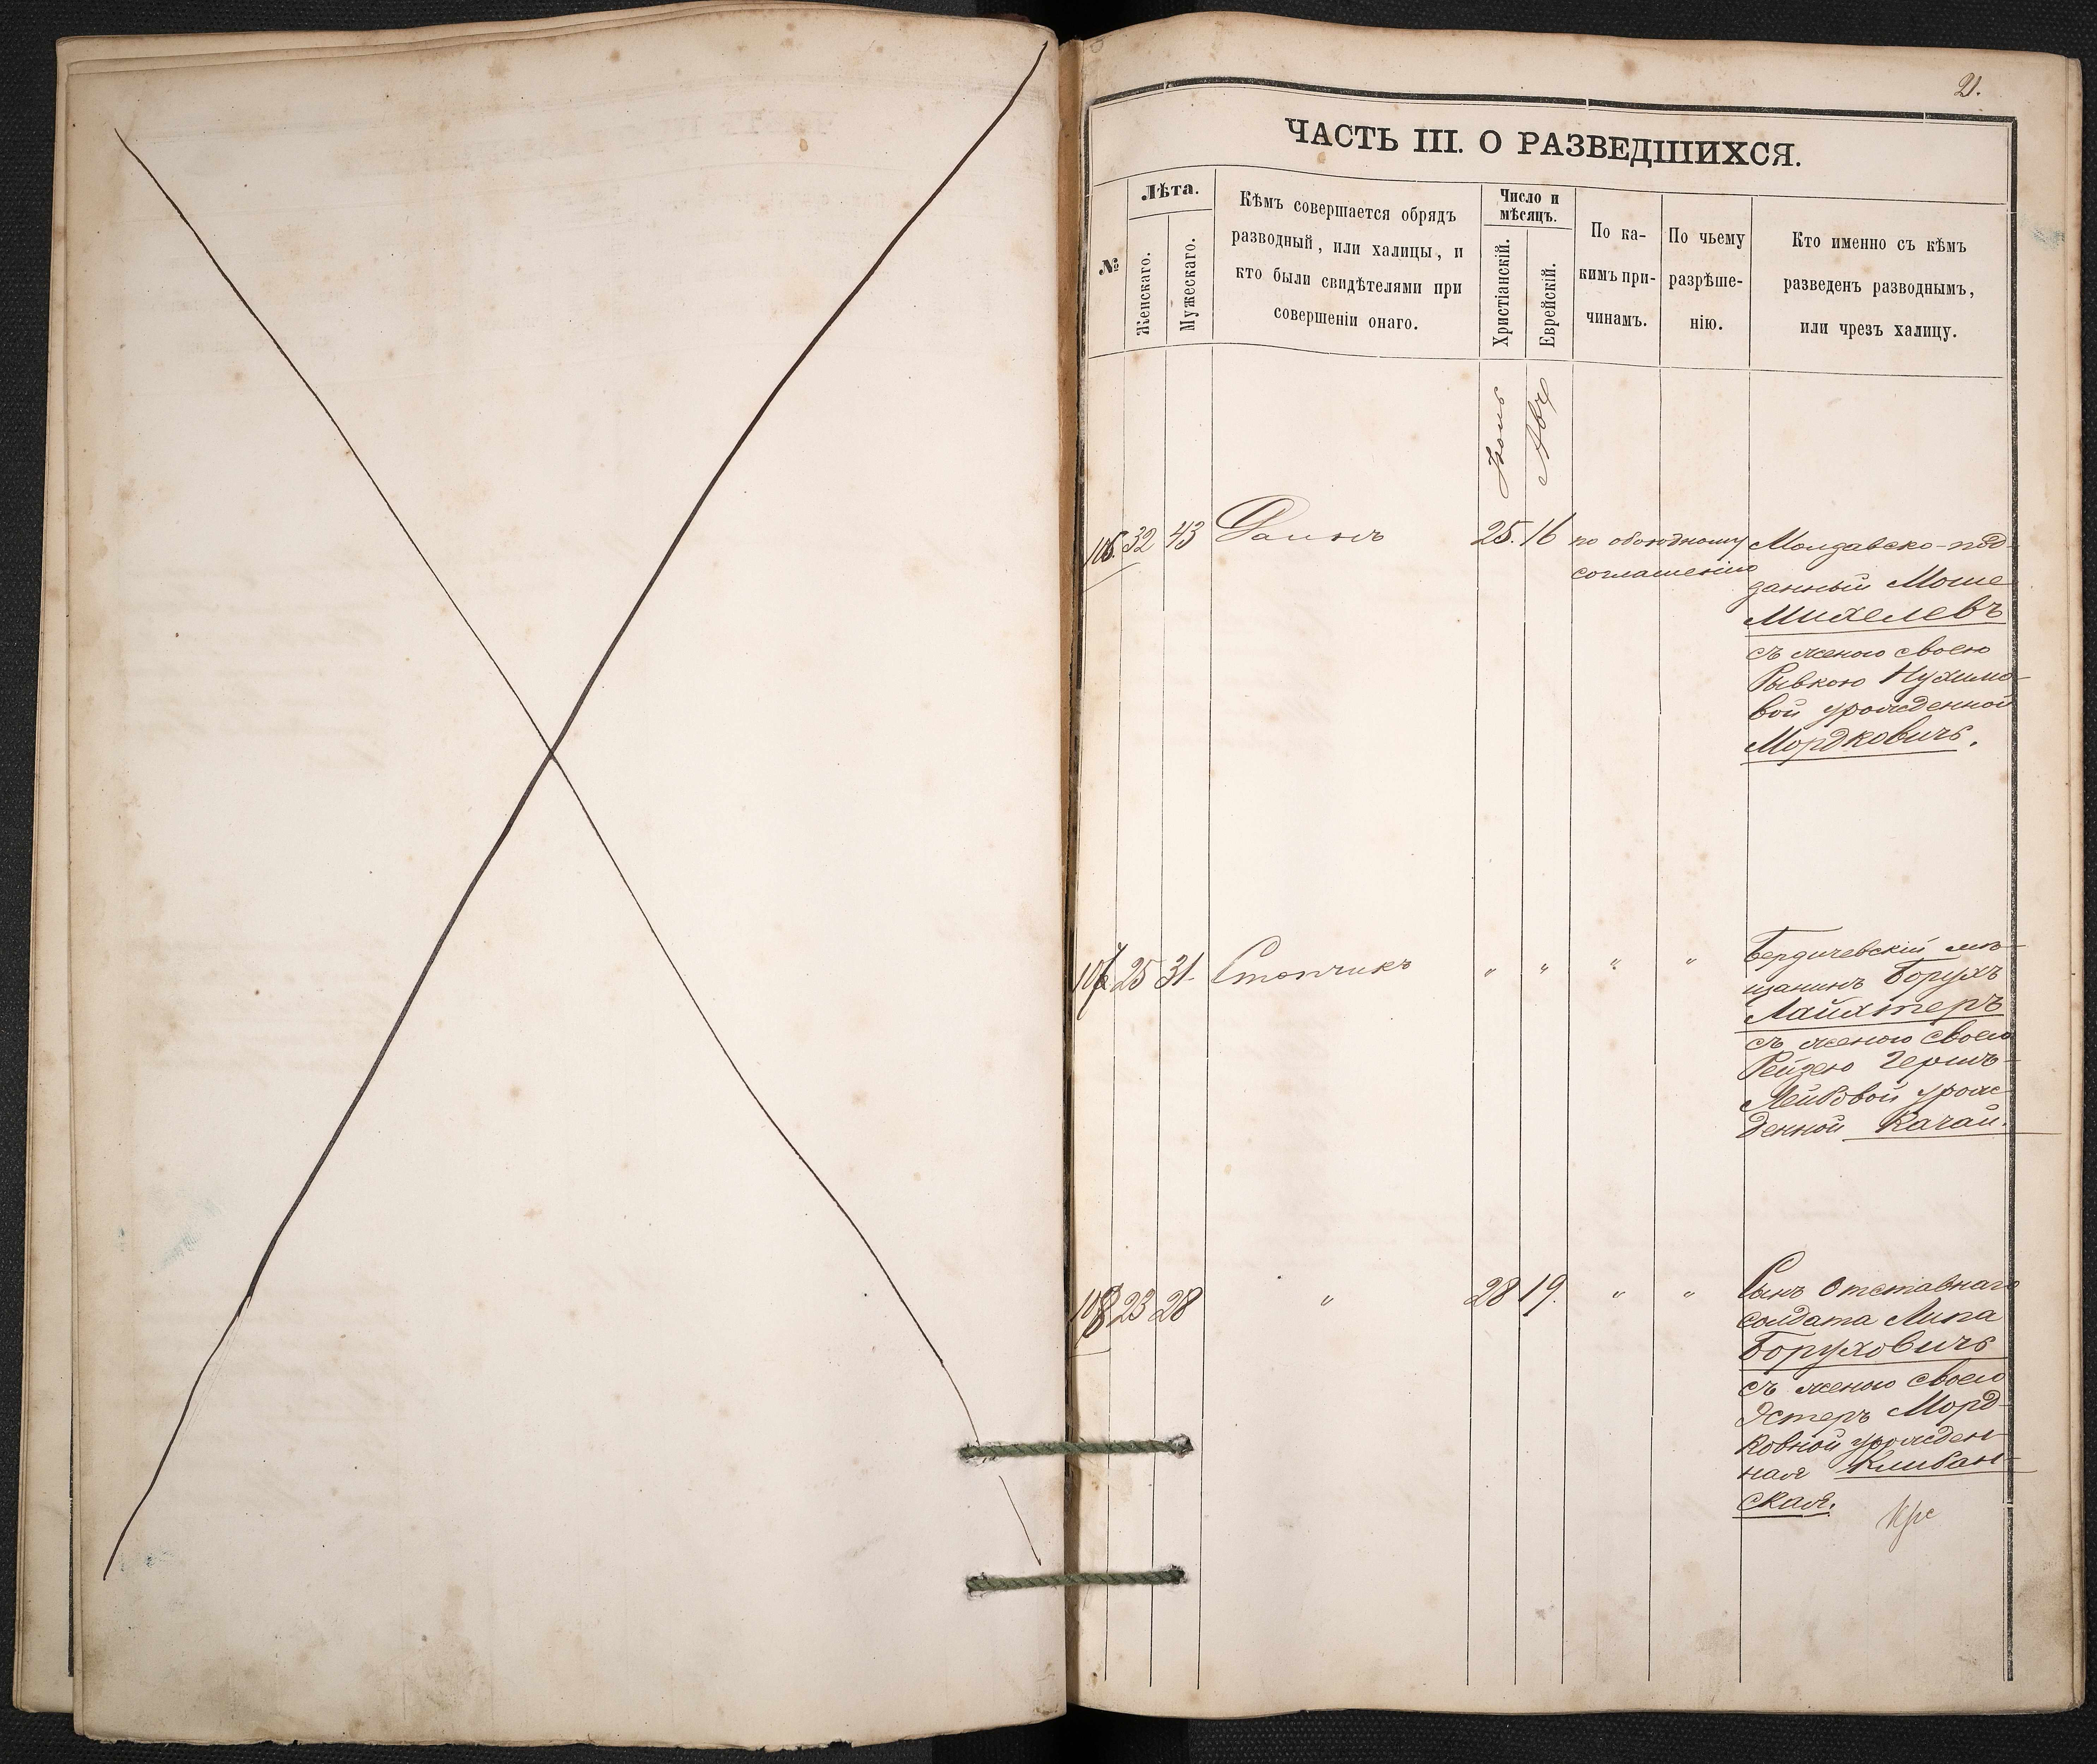 21.
ЧАСТЬ III. О РАЗВЕДШИХСЯ.
№
Лѣта.
Женскаго.
Мужескаго.
Кѣмъ совершается обрядъ
разводный, или халицы, и
кто были свидѣтелями при
совершеніи онаго.
Число и
мѣсяцъ.
Христіанскій.
Еврейскій.
По ка-
кимъ при-
чинамъ.
По чьему
разрѣше-
нію.
Кто именно съ кѣмъ
разведенъ разводнымъ,
или чрезъ халицу.
Іюль
Авъ
106. 32 43 Даинъ 25. 16 по обоюдному
соглашенію
Молдавско-под-
данный Моше
Михелевъ
съ женою своею
Рывкою Нухимо-
вой урожденной
Мордковичъ.
107 25 31 Столчикъ " " " "
Бердичевскій мѣ-
щанинъ Борухъ
Лайхтеръ
съ женою своею
Рейзею Гершъ-
Лейбовой урож-
денной Качай.
108 23 28 " 28 19. " "
Сынъ Отставнаго
солдата Липа
Боруховичъ
съ женою своею
Эстеръ Морд-
ковной урожден-
ная Клибан-
ская.